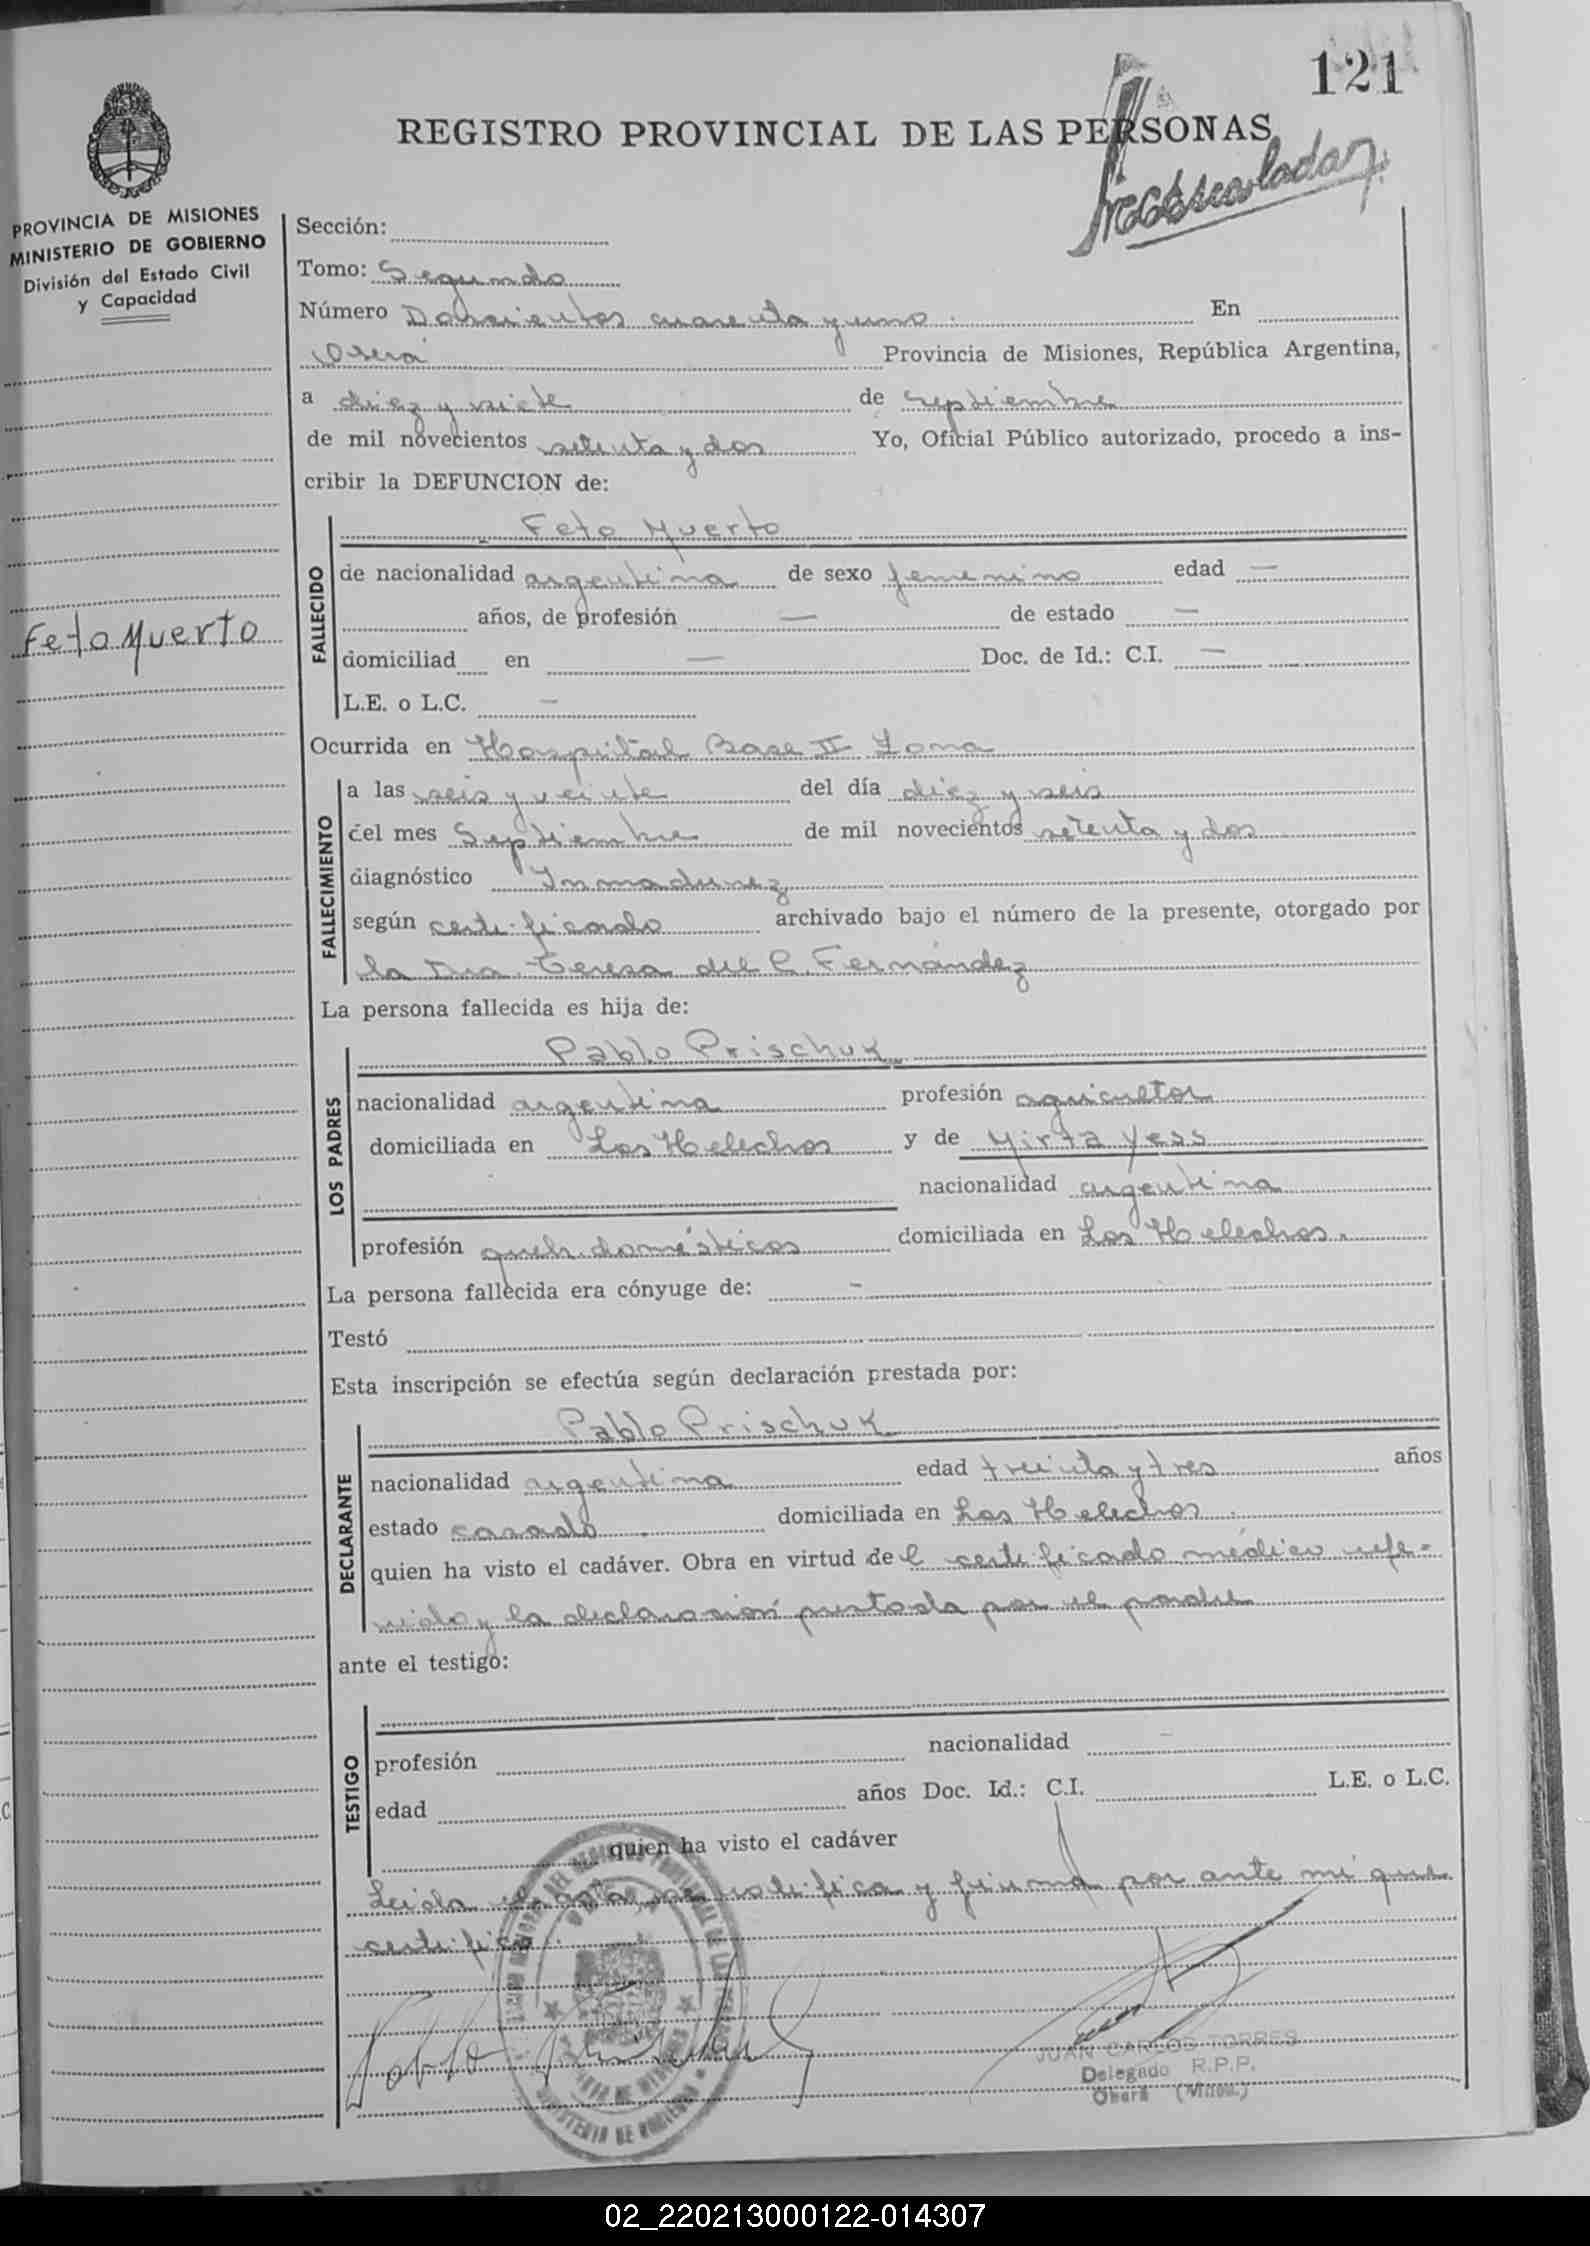 121
REGISTRO PROVINCIAL DE LAS PERSONAS
PROVINCIA DE MISIONES
MINISTERIO DE GOBIERNO
División del Estado Civil
y Capacidad
Sección:
Tomo: Segundo
Número Doscientos cuarenta y uno. En
Oberá Provincia de Misiones, República Argentina,
a diez y siete de septiembre
de mil novecientos setenta y dos Yo, Oficial Público autorizado, procedo a ins-
cribir la DEFUNCION de:
Feto Muerto
FALLECIDO
de nacionalidad argentina de sexo femenino edad —
años, de profesión — de estado —
Feto Muerto
domiciliad en — Doc. de Id.: C.I. —
L.E. o L.C. —
Ocurrida en Hospital Base II Zona
FALLECIMIENTO
a las seis y veinte del día diez y seis
del mes Septiembre de mil novecientos setenta y dos
diagnóstico Inmadurez
según certificado archivado bajo el número de la presente, otorgado por
la Dra Teresa del C. Fernández
La persona fallecida es hija de:
LOS PADRES
Pablo Prischuk
nacionalidad argentina profesión agricultor
domiciliada en Los Helechos y de Mirta Yess
nacionalidad argentina
profesión queh. domésticos domiciliada en Los Helechos.
La persona fallecida era cónyuge de: -
Testó
Esta inscripción se efectúa según declaración prestada por:
DECLARANTE
Pablo Prischuk
nacionalidad argentina edad treinta y tres años
estado casado. domiciliada en Los Helechos.
quien ha visto el cadáver. Obra en virtud del certificado médico refe-
rido y la declaración prestada por el padre
ante el testigo:
TESTIGO
profesión nacionalidad
edad años Doc. Id.: C.I. L.E. o L.C.
quien ha visto el cadáver
Leida el acta se ratifica y firma por ante mí que
certifico.
Pablo
JUAN CARLOS TORRES
Delegado R.P.P.
Oberá (Mnes.)
MINISTERIO DE GOBIERNO
02_220213000122-014307